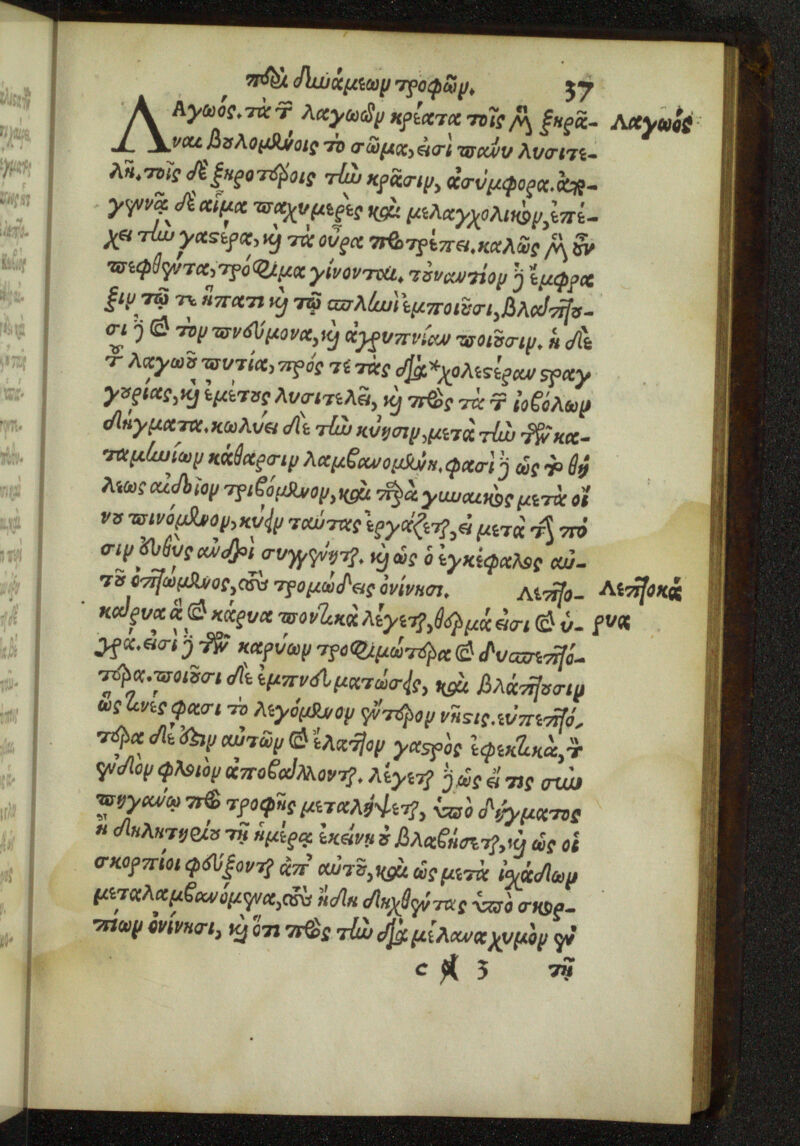 περὶ δυνάμεων τροφῶν. 37
ΛΑγωός. τὰ τῶν λαγωῶν κρέατα τοῖς μὲν ξηρᾶ- Λαγωός
ναι βουλομένοις τὸ σῶμα, εἰσὶ πάνυ λυσιτε-
λῆ. τοῖς δὲ ξηροτέροις τὴν κρᾶσιν, ἀσύμφορα.
γεννᾷ δὲ αἷμα παχυμερὲς καὶ μελαγχολικὸν, ἐπέ-
χει τὴν γαστέρα, καὶ τὰ οὖρα προτρέπει. καλῶς μὲν οὖν
πεφθέντα, τρόφιμα γίνονται. τοὐναντίον δὲ ἔμφρα
ξιν τῷ τε ἥπατι καὶ τῷ σπληνὶ ἐμποιοῦσι, βλάπτου-
σι δὲ καὶ τὸν πνεύμονα, καὶ ἀγρυπνίαν ποιοῦσιν. ἡ δὲ
τοῦ λαγωοῦ πυτία, πρός τε τὰς διὰ *χολεστέραν στραγ
γουρίας, καὶ ἐμέτους λυσιτελεῖ, καὶ πρὸς τὰ τῶν ἰοβόλων
δήγματα. κωλύει δὲ τὴν κύησιν, μετὰ τὴν τῶν κα-
ταμηνίων κάθαρσιν λαμβανομένη. φασὶ δὲ ὡς τὸ θή
λεως αἰδοῖον τριβόμενον, καὶ παρὰ γυναικὸς μετὰ οἴ
νου πινόμενον, κύειν ταύτας ἐργάζεται, εἰ μετὰ τὴν πό
σιν εὐθὺς ἀνδρὶ συγγένηται. καὶ ὡς ὁ ἐγκέφαλος αὐ-
τοῦ ὀπτώμενος, τοὺς τρομώδεις ὀνίνησι. Λεπτο- Λεπτοκά
κάρυα ἃ καὶ κάρυα ποντικὰ λέγεται, θερμά εἰσι καὶ ὑ- ρυα
γρά. εἰσὶ δὲ τῶν καρύων τροφιμώτερα καὶ δυσπεπτό-
τερα. ποιοῦσι δὲ ἐμπνευματώσεις, καὶ βλάπτουσιν
ὥς τινές φασι τὸ λεγόμενον ἔντερον νῆστις. εὐπεπτό-
τερα δέ ἐστιν αὐτῶν καὶ ἔλαττον γαστρὸς ἐφεκτικὰ, τὸν
ἔνδον φλοιὸν ἀποβάλλοντα. λέγεται δὲ ὡς εἴ τις σὺν
πηγάνῳ πρὸ τροφῆς μεταλήψεται, ὑπὸ δήγματος
ἢ δηλητηρίου τῇ ἡμέρᾳ ἐκείνῃ οὐ βλαβήσεται, καὶ ὡς οἱ
σκορπίοι φεύξονται ἀπ' αὐτοῦ, καὶ ὡς μετὰ ἰσχάδων
μεταλαμβανόμενα, τοὺς ἤδη δηχθέντας ὑπὸ σκορ-
πίων ὀνίνησι, καὶ ὅτι πρὸς τὴν διὰ μέλανα χυμὸν ἐν
c 3 τῇ